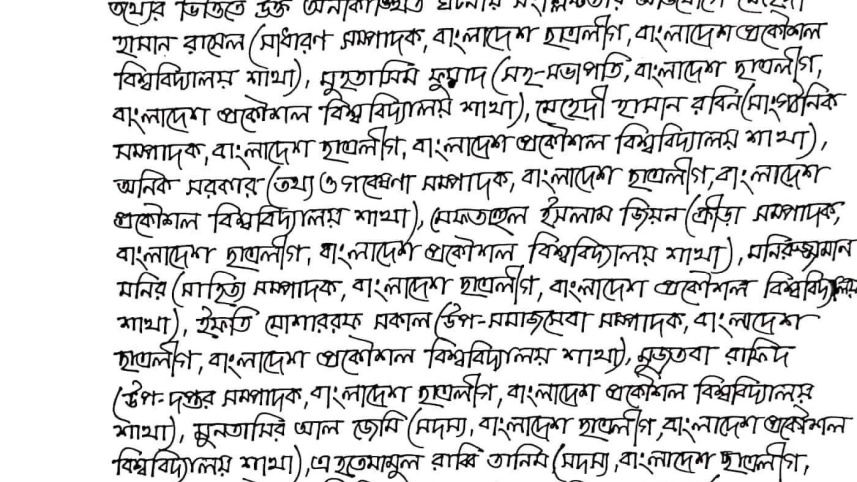 তথ্যের ভিত্তিতে উক্ত অনাকাঙ্খিত ঘটনায় সংশ্লিষ্টতার অভিযোগে মেহেদী
হাসান রাসেল (সাধারণ সম্পাদক, বাংলাদেশ ছাত্রলীগ, বাংলাদেশ প্রকৌশল
বিশ্ববিদ্যালয় শাখা), মুহতাসিম ফুয়াদ (সহ-সভাপতি, বাংলাদেশ ছাত্রলীগ,
বাংলাদেশ প্রকৌশল বিশ্ববিদ্যালয় শাখা), মেহেদী হাসান রবিন (সাংগঠনিক
সম্পাদক, বাংলাদেশ ছাত্রলীগ, বাংলাদেশ প্রকৌশল বিশ্ববিদ্যালয় শাখা),
অনিক সরকার (তথ্য ও গবেষণা সম্পাদক, বাংলাদেশ ছাত্রলীগ, বাংলাদেশ
প্রকৌশল বিশ্ববিদ্যালয় শাখা), মেফতাহুল ইসলাম জিয়ন (ক্রীড়া সম্পাদক,
বাংলাদেশ ছাত্রলীগ, বাংলাদেশ প্রকৌশল বিশ্ববিদ্যালয় শাখা), মনিরুজ্জামান
মনির (সাহিত্য সম্পাদক, বাংলাদেশ ছাত্রলীগ, বাংলাদেশ প্রকৌশল বিশ্ববিদ্যালয়
শাখা), ইফতি মোশাররফ সকাল (উপ-সমাজসেবা সম্পাদক, বাংলাদেশ
ছাত্রলীগ, বাংলাদেশ প্রকৌশল বিশ্ববিদ্যালয় শাখা), মুজতবা রাফিদ
(উপ-দপ্তর সম্পাদক, বাংলাদেশ ছাত্রলীগ, বাংলাদেশ প্রকৌশল বিশ্ববিদ্যালয়
শাখা), মুনতাসির আল জেমি (সদস্য, বাংলাদেশ ছাত্রলীগ, বাংলাদেশ প্রকৌশল
বিশ্ববিদ্যালয় শাখা), এহতেমামুল রাব্বি তানিম (সদস্য, বাংলাদেশ ছাত্রলীগ,